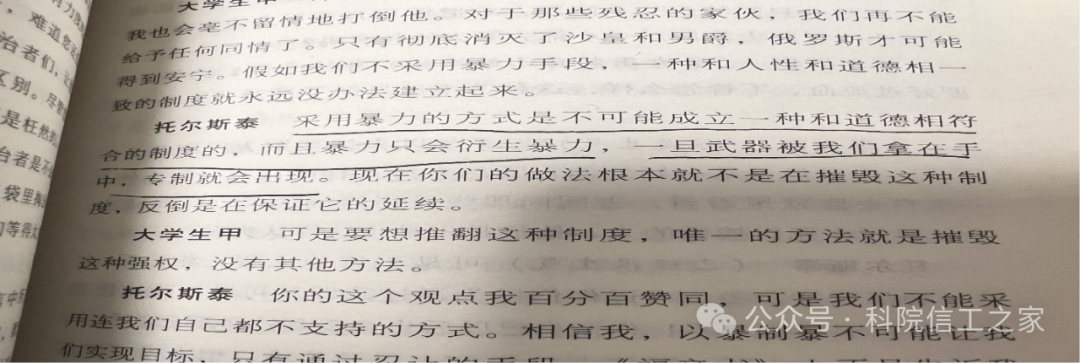 大学生甲
我也会毫不留情地打倒他。对于那些残忍的家伙，我们再不能
给予任何同情了。只有彻底消灭了沙皇和男爵，俄罗斯才可能
得到安宁。假如我们不采用暴力手段，一种和人性和道德相一
致的制度就永远没办法建立起来。
托尔斯泰 采用暴力的方式是不可能成立一种和道德相符
合的制度的，而且暴力只会衍生暴力，一旦武器被我们拿在手
中，专制就会出现。现在你们的做法根本就不是在摧毁这种制
度，反倒是在保证它的延续。
大学生甲 可是要想推翻这种制度，唯一的方法就是摧毁
这种强权，没有其他方法。
托尔斯泰 你的这个观点我百分百赞同，可是我们不能采
用连我们自己都不支持的方式。相信我，以暴制暴不可能让我
们实现目标，只有通过忍让的手段
治者们，
区别。尽管
是枉然的
台者是不
袋里
公众号·科院信工之家